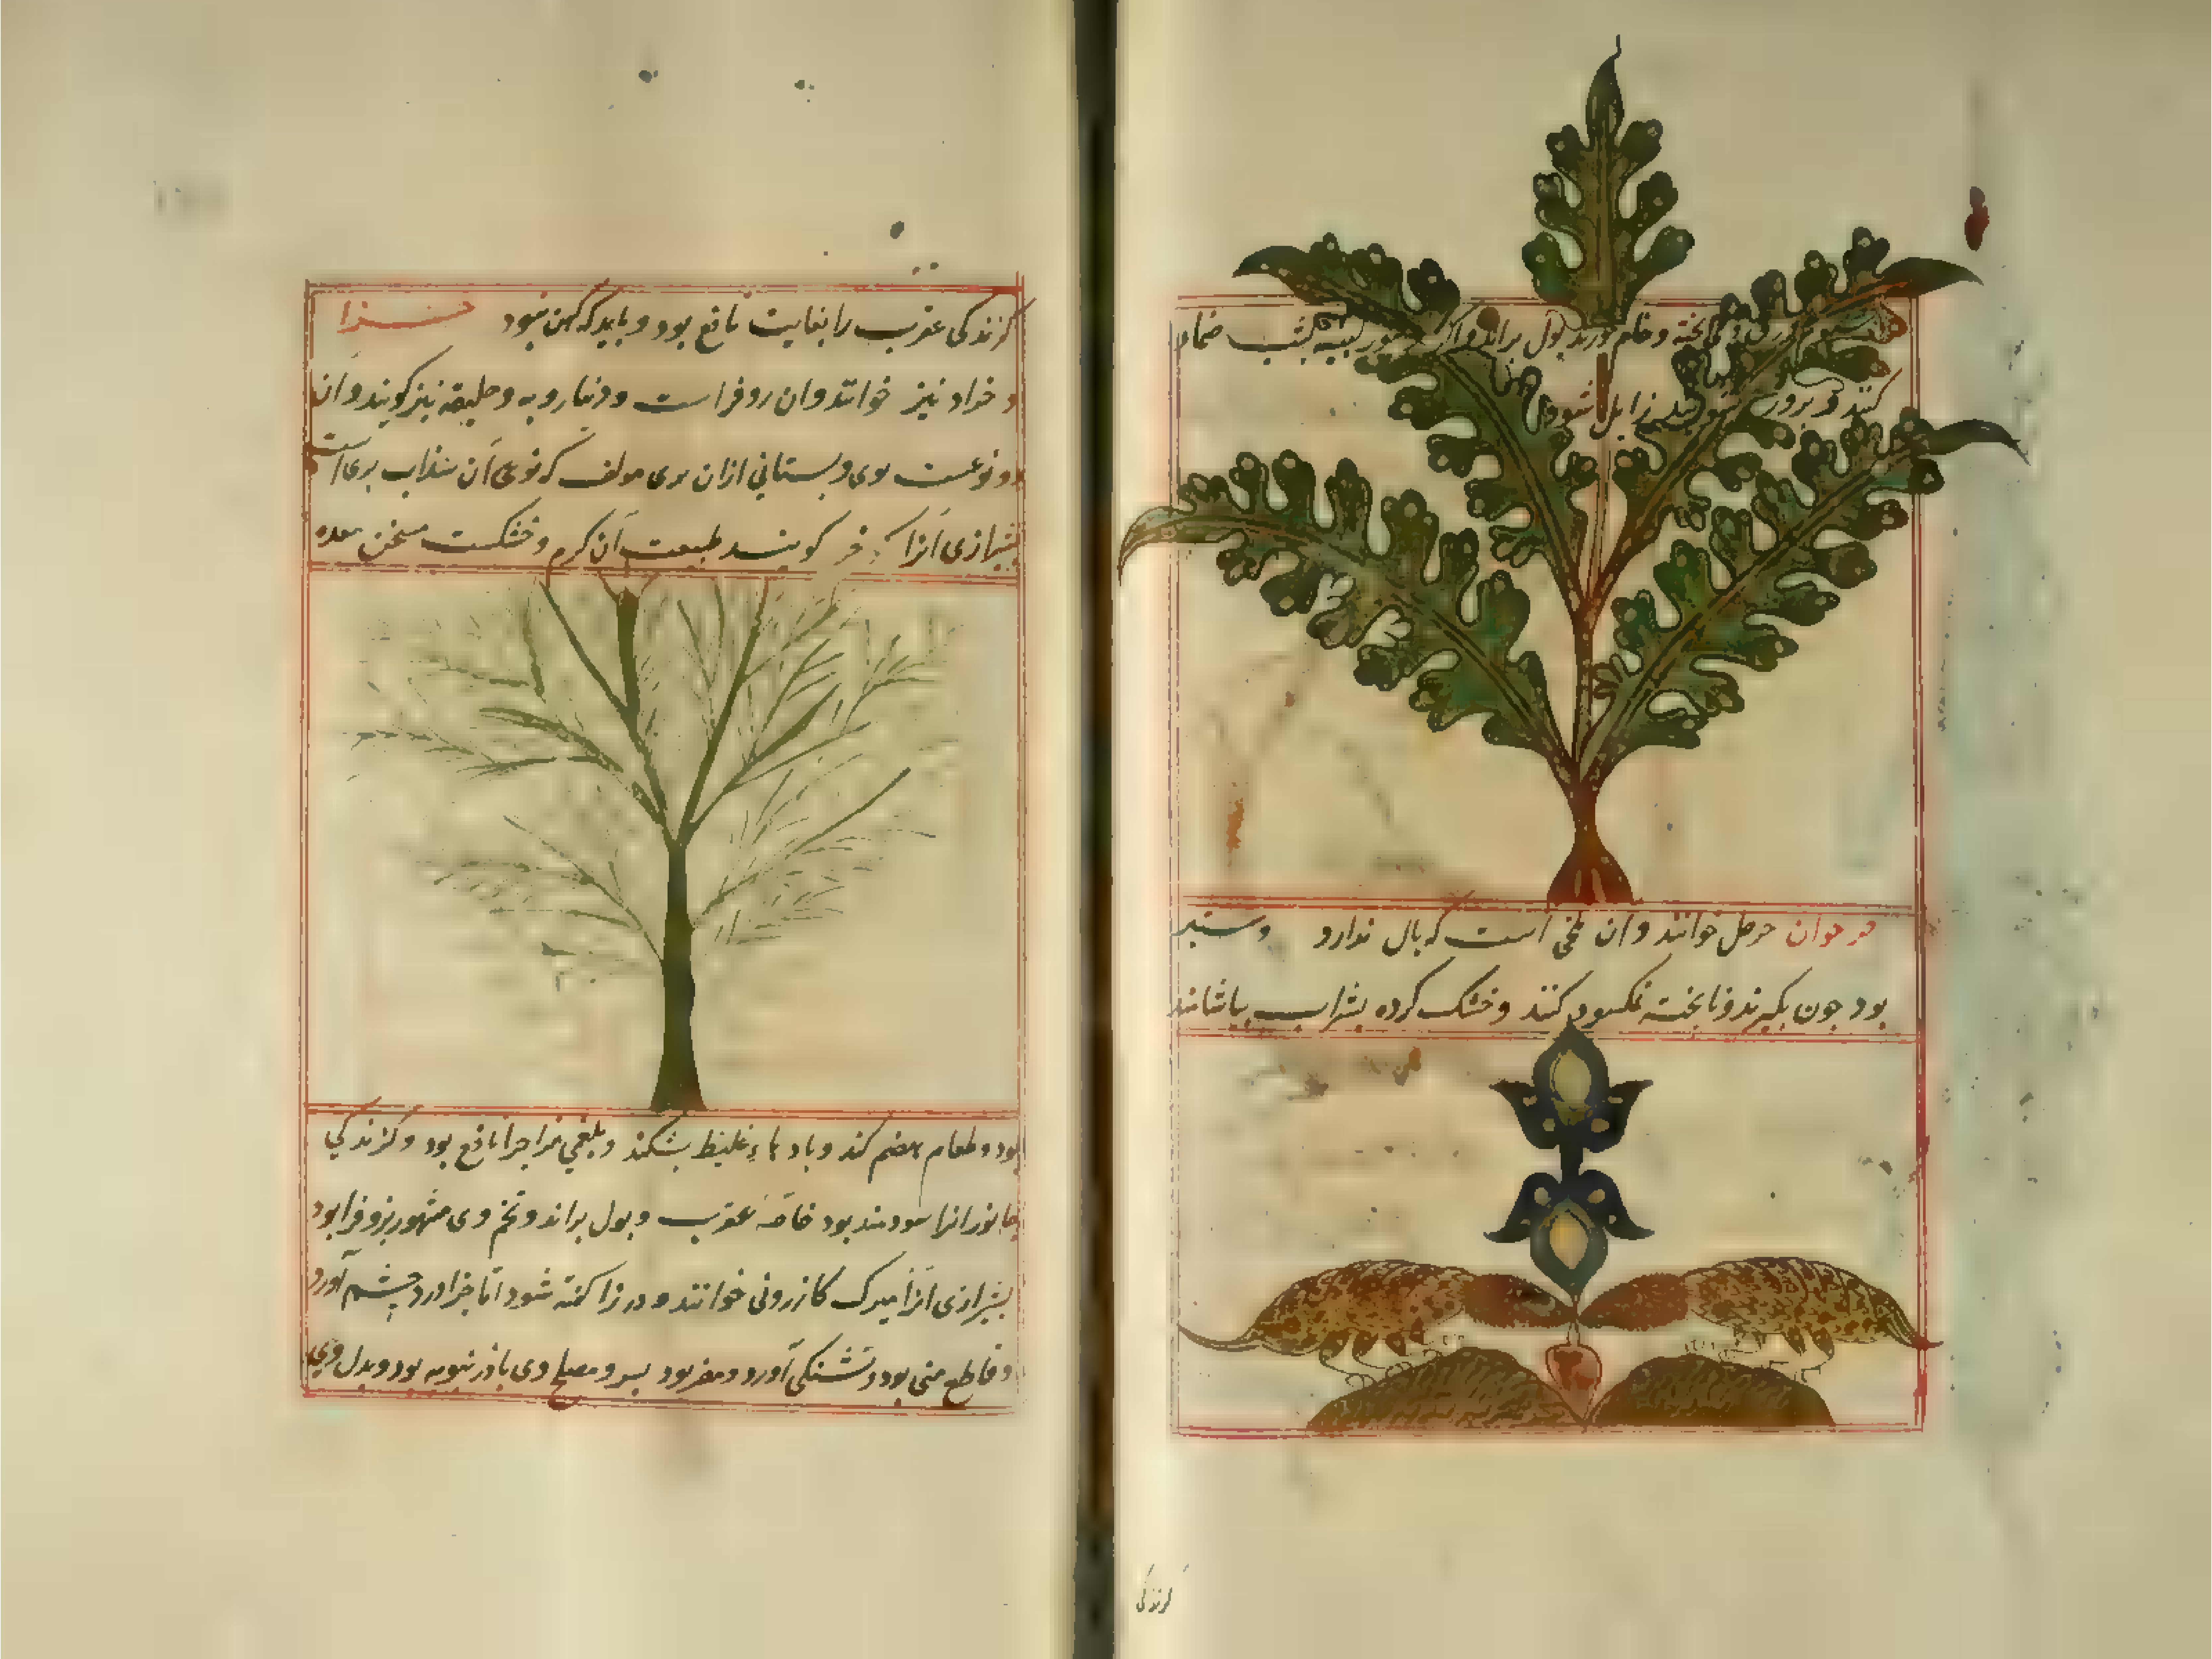 بول براند و
کنند و بروز زایل شود
حرجوان حرجل خوانند و ان ملخی است که بال ندارد و ستبر
بود جون بکیرند و نابخته نمکسود کنند و خشک کرده بشراب بیاشامند
کزندکی
کزندکی عقرب را بغایت نافع بود و باید که کهن نبود حزا
و خزاد نیز خوانند و ان روفرا است و دنیارویه و نیز کویند و آن
دو نوعست بری و بستانی ازان بری مولف که نوعی آن سداب بری است
بشیرازی آنرا کویند طبیعت آن کرم و خشکست مسخن معده
بود و طعام هضم کند و بادهاء غلیظ بشکند و بلغمی مزاجرا نافع بود و کزندکی
جانورانرا سودمند بود خاصه عقرب و بول براند و تخم وی مشهور بزوفرا بود
بشیرازی آنرا کازرونی خوانند و در زا کفته شود اما حزا درد چشم آورد
و قاطع منی بود و تشنکی آورد و مضر بود بسر و مصلح وی باذرنبویه بود و بدل وی